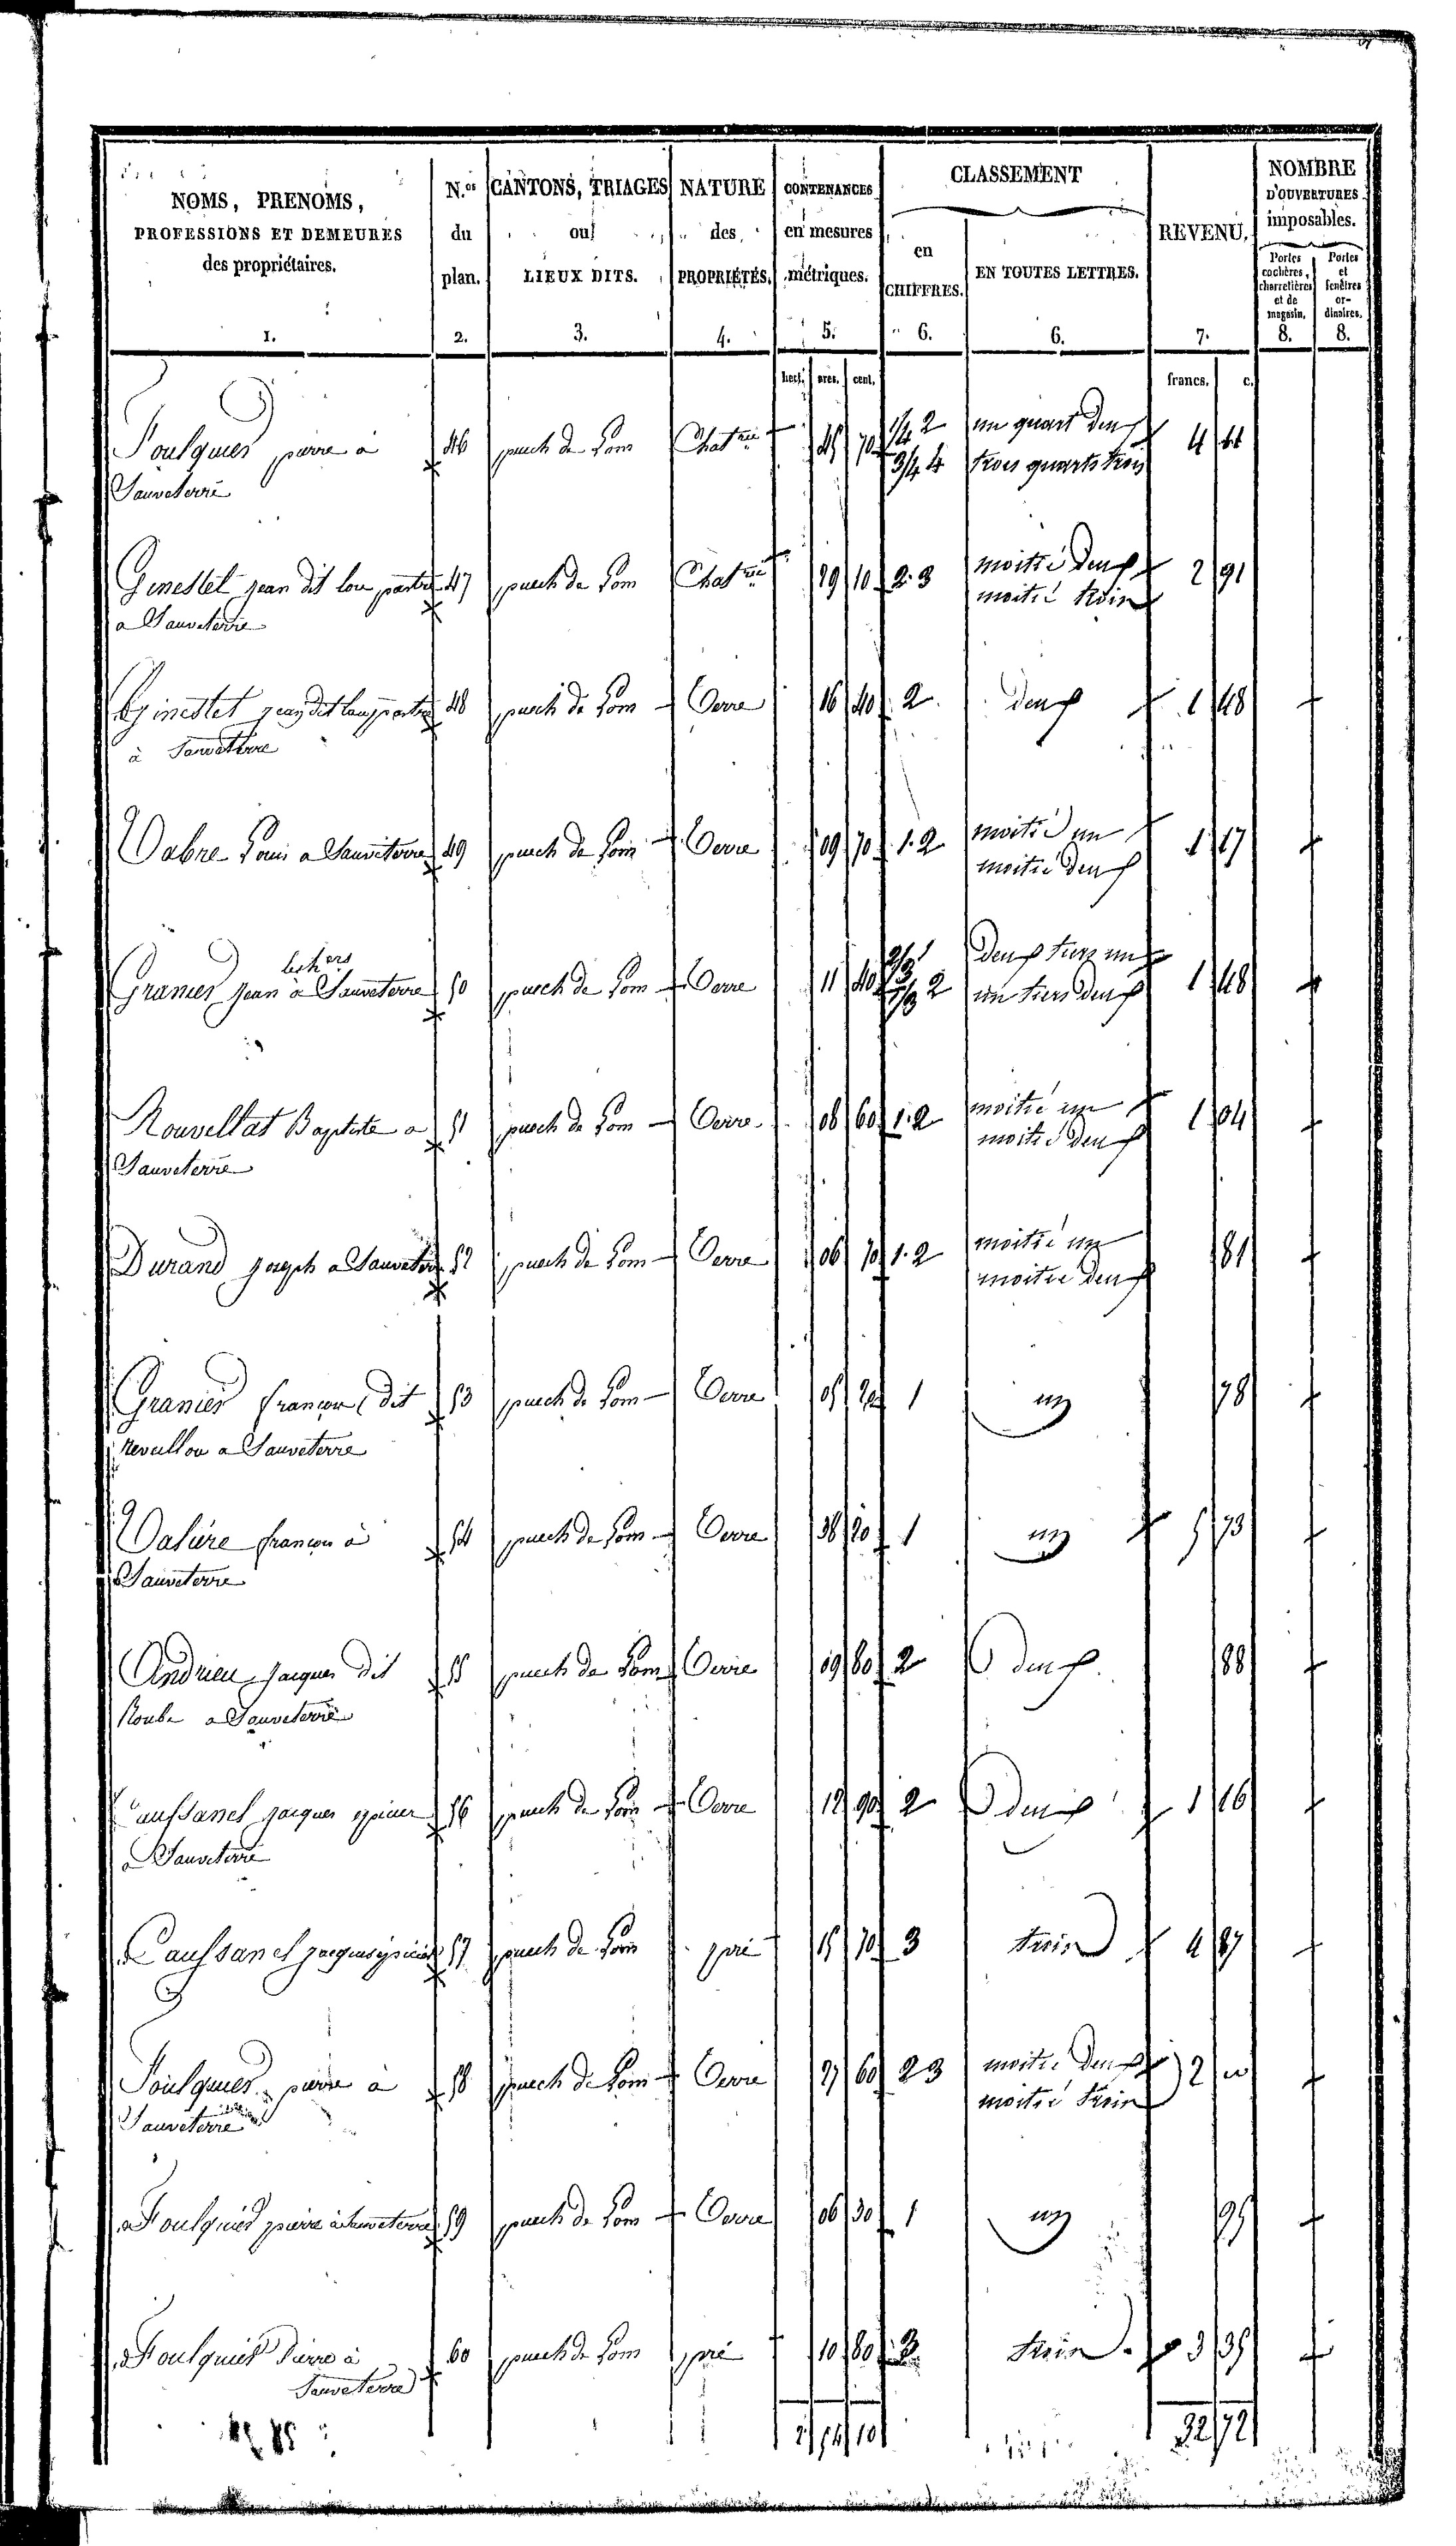 NOMS, PRENOMS,
PROFESSIONS ET DEMEURES
des propriétaires.
1.
N.os
du
plan.
2.
CANTONS, TRIAGES
ou
LIEUX DITS.
3.
NATURE
des
PROPRIÉTÉS.
4.
CONTENANCES
en mesures
métriques.
5.
CLASSEMENT
en
CHIFFRES.
6.
EN TOUTES LETTRES.
6.
REVENU.
7.
NOMBRE
D'OUVERTURES
imposables.
Portes
cochères,
charretières
et de
magasin.
8.
Portes
et
fenêtres
or-
dinaires.
8.
hect. ares. cent. francs. c.
Foulquier pierre à 46 puech de Lom Chat.rie 45 70 1/4 2 un quart deux 4 44
Sauveterre 3/4 4 trois quarts trois
Ginestet jean dit lou pastre 47 puech de Lom Chat.rie 29 10 2.3 moitié deux 2 91
a Sauveterre moitié trois
Ginestet jean dit lou pastre 48 puech de Lom Terre 16 40 2 deux 1 48
à Sauveterre
Vabre Louis a Sauveterre 49 puech de Lom Terre 09 70 1.2 moitié un 1 17
moitié deux
les hers
Granier jean à Sauveterre 50 puech de Lom Terre 11 40 2/3 1 Deux tiers un 1 48
1/3 2 un tiers deux
Rouvellat Baptiste a 51 puech de Lom Terre 08 60 1.2 moitié un 1 04
Sauveterre moitié deux
Durand joseph a Sauveterre 52 puech de Lom Terre 06 70 1.2 moitié un 81
moitié deux
Granier françois dit 53 puech de Lom Terre 05 20 1 un 78
a Sauveterre
Valière françois à 54 puech de Lom Terre 38 20 1 un 5 73
Sauveterre
Andrieu jacques dit 55 puech de Lom Terre 09 80 2 deux 88
Roube a Sauveterre
Caussanel jacques epicier 56 puech de Lom Terre 12 90 2 deux 1 16
a Sauveterre
Caussanel jacques epicier 57 puech de Lom pré 15 70 3 trois 4 87
Foulquier pierre à 58 puech de Lom Terre 27 60 2 3 moitié deux 2
Sauveterre moitié trois
Foulquier pierre à Sauveterre 59 puech de Lom Terre 06 30 1 un 95
Foulquier Pierre à 60 puech de Lom pré 10 80 3 trois 3 35
Sauveterre
2 54 10 32 72